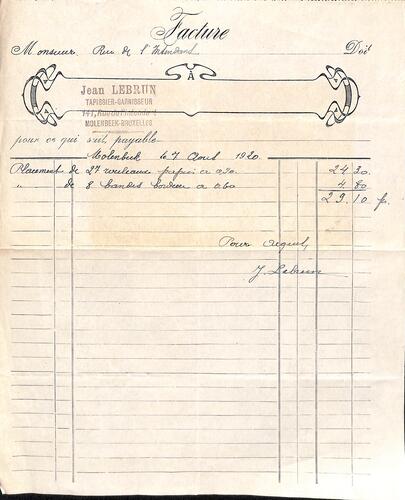 Facture
Monsieur, Rue de l'Intendant Doit
À
Jean LEBRUN
TAPISSIER-GARNISSEUR
141, Rue de l'Intendant
MOLENBEEK-BRUXELLES
pour ce qui suit payable
Molenbeek le 7 Aout 1920.
Placement de 27 rouleaux papier à 0,90. 24 30.
" de 8 bandes bordure à 0.60 4 80
29.10 f.
Pour acquit,
J. Lebrun